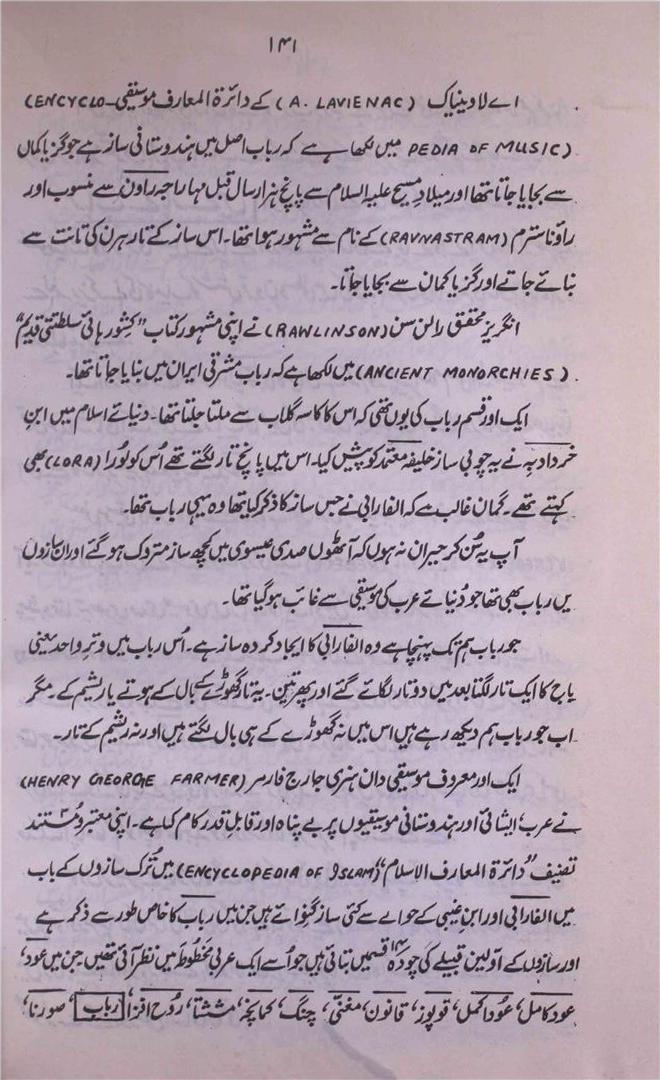 ۱۴۱
اے لاوینیاک (A. LAVIENAC) کے دائرۃ المعارف موسیقی (ENCYCLO-
PEDIA OF MUSIC) میں لکھا ہے کہ رباب اصل میں ہندوستانی ساز ہے جو گز یا کماں
سے بجایا جاتا تھا اور میلادِ مسیح علیہ السلام سے پانچ ہزار سال قبل مہاراجہ راون سے منسوب اور
راوناسترم (RAVNASTRAM) کے نام سے مشہور ہوا تھا۔ اس ساز کے تار ہرن کی تانت سے
بنائے جاتے اور گز یا کمان سے بجایا جاتا۔
انگریز محقق رالن سن (RAWLINSON) نے اپنی مشہور کتاب "کشور ہائی سلطنتی قدیم"
(ANCIENT MONORCHIES) میں لکھا ہے کہ رباب مشرقی ایران میں بنایا جاتا تھا۔
ایک اور قسم رباب کی یوں تھی کہ اس کا کاسہ گلاب سے ملتا جلتا تھا۔ دنیائے اسلام میں ابنِ
خردادبہ نے یہ چوبی ساز خلیفہ معتمد کو پیش کیا۔ اس میں پانچ تار لگتے تھے اُس کو لُورا (LORA) بھی
کہتے تھے۔ گمان غالب ہے کہ الفارابی نے جس ساز کا ذکر کیا تھا وہ یہی رباب تھا۔
آپ یہ سُن کر حیران نہ ہوں کہ آٹھویں صدی عیسوی میں کچھ ساز متروک ہو گئے اور ان سازوں
میں رباب بھی تھا جو دُنیائے عرب کی موسیقی سے غائب ہو گیا تھا۔
جو رباب ہم تک پہنچا ہے وہ الفارابی کا ایجاد کردہ ساز ہے۔ اُس رباب میں وترِ واحد یعنی
یا ج کا ایک تار لگتا بعد میں دو تار لگائے گئے اور پھر تین۔ یہ تار گھوڑے کے بال کے ہوتے یا ریشیم کے۔ مگر
اب جو رباب ہم دیکھ رہے ہیں اس میں نہ گھوڑے کے ہی بال لگتے ہیں اور نہ ریشم کے تار۔
ایک اور معروف موسیقی دان ہنری جارج فارمر (HENRY GEORGE FARMER)
نے عرب، ایشائی اور ہندوستانی موسیقیوں پر بے پناہ اور قابلِ قدر کام کیا ہے۔ اپنی معتبر و مستند
تصنیف "دائرۃ المعارف الاسلام" (ENCYCLOPEDIA OF ISLAM) میں تُرک سازوں کے باب
میں الفارابی اور ابنِ غیبی کے حوالے سے کئی ساز گنوائے ہیں جن میں رباب کا خاص طور سے ذکر ہے
اور سازوں کے اوّلین قبیلے کی چودہ ۱۴ قسمیں بتائی ہیں جو اُسے ایک عربی مخطوط میں نظر آئی تھیں جن میں عود،
عود کامل، عُود اکمل، قوپوز، قانون، مغنّی، چنگ، کمانچہ، مششتا، رُوح افزا، رباب، صورنا،